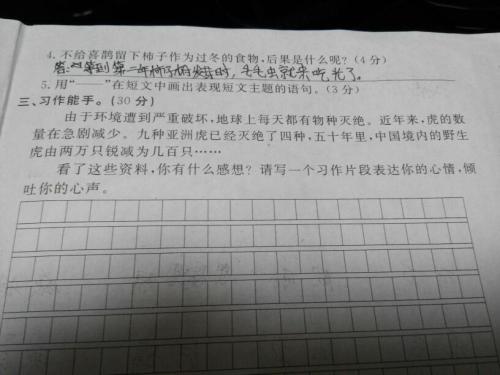 4. 不给喜鹊留下柿子作为过冬的食物,后果是什么呢?(4分)
答:等到第二年柿子树发芽时,毛毛虫就来吃光了。
5. 用“——”在短文中画出表现短文主题的语句。(3分)
三、习作能手。(30分)
由于环境遭到严重破坏,地球上每天都有物种灭绝。近年来,虎的数
量在急剧减少。九种亚洲虎已经灭绝了四种,五十年里,中国境内的野生
虎由两万只锐减为几百只……
看了这些资料,你有什么感想?请写一个习作片段表达你的心情,倾
吐你的心声。